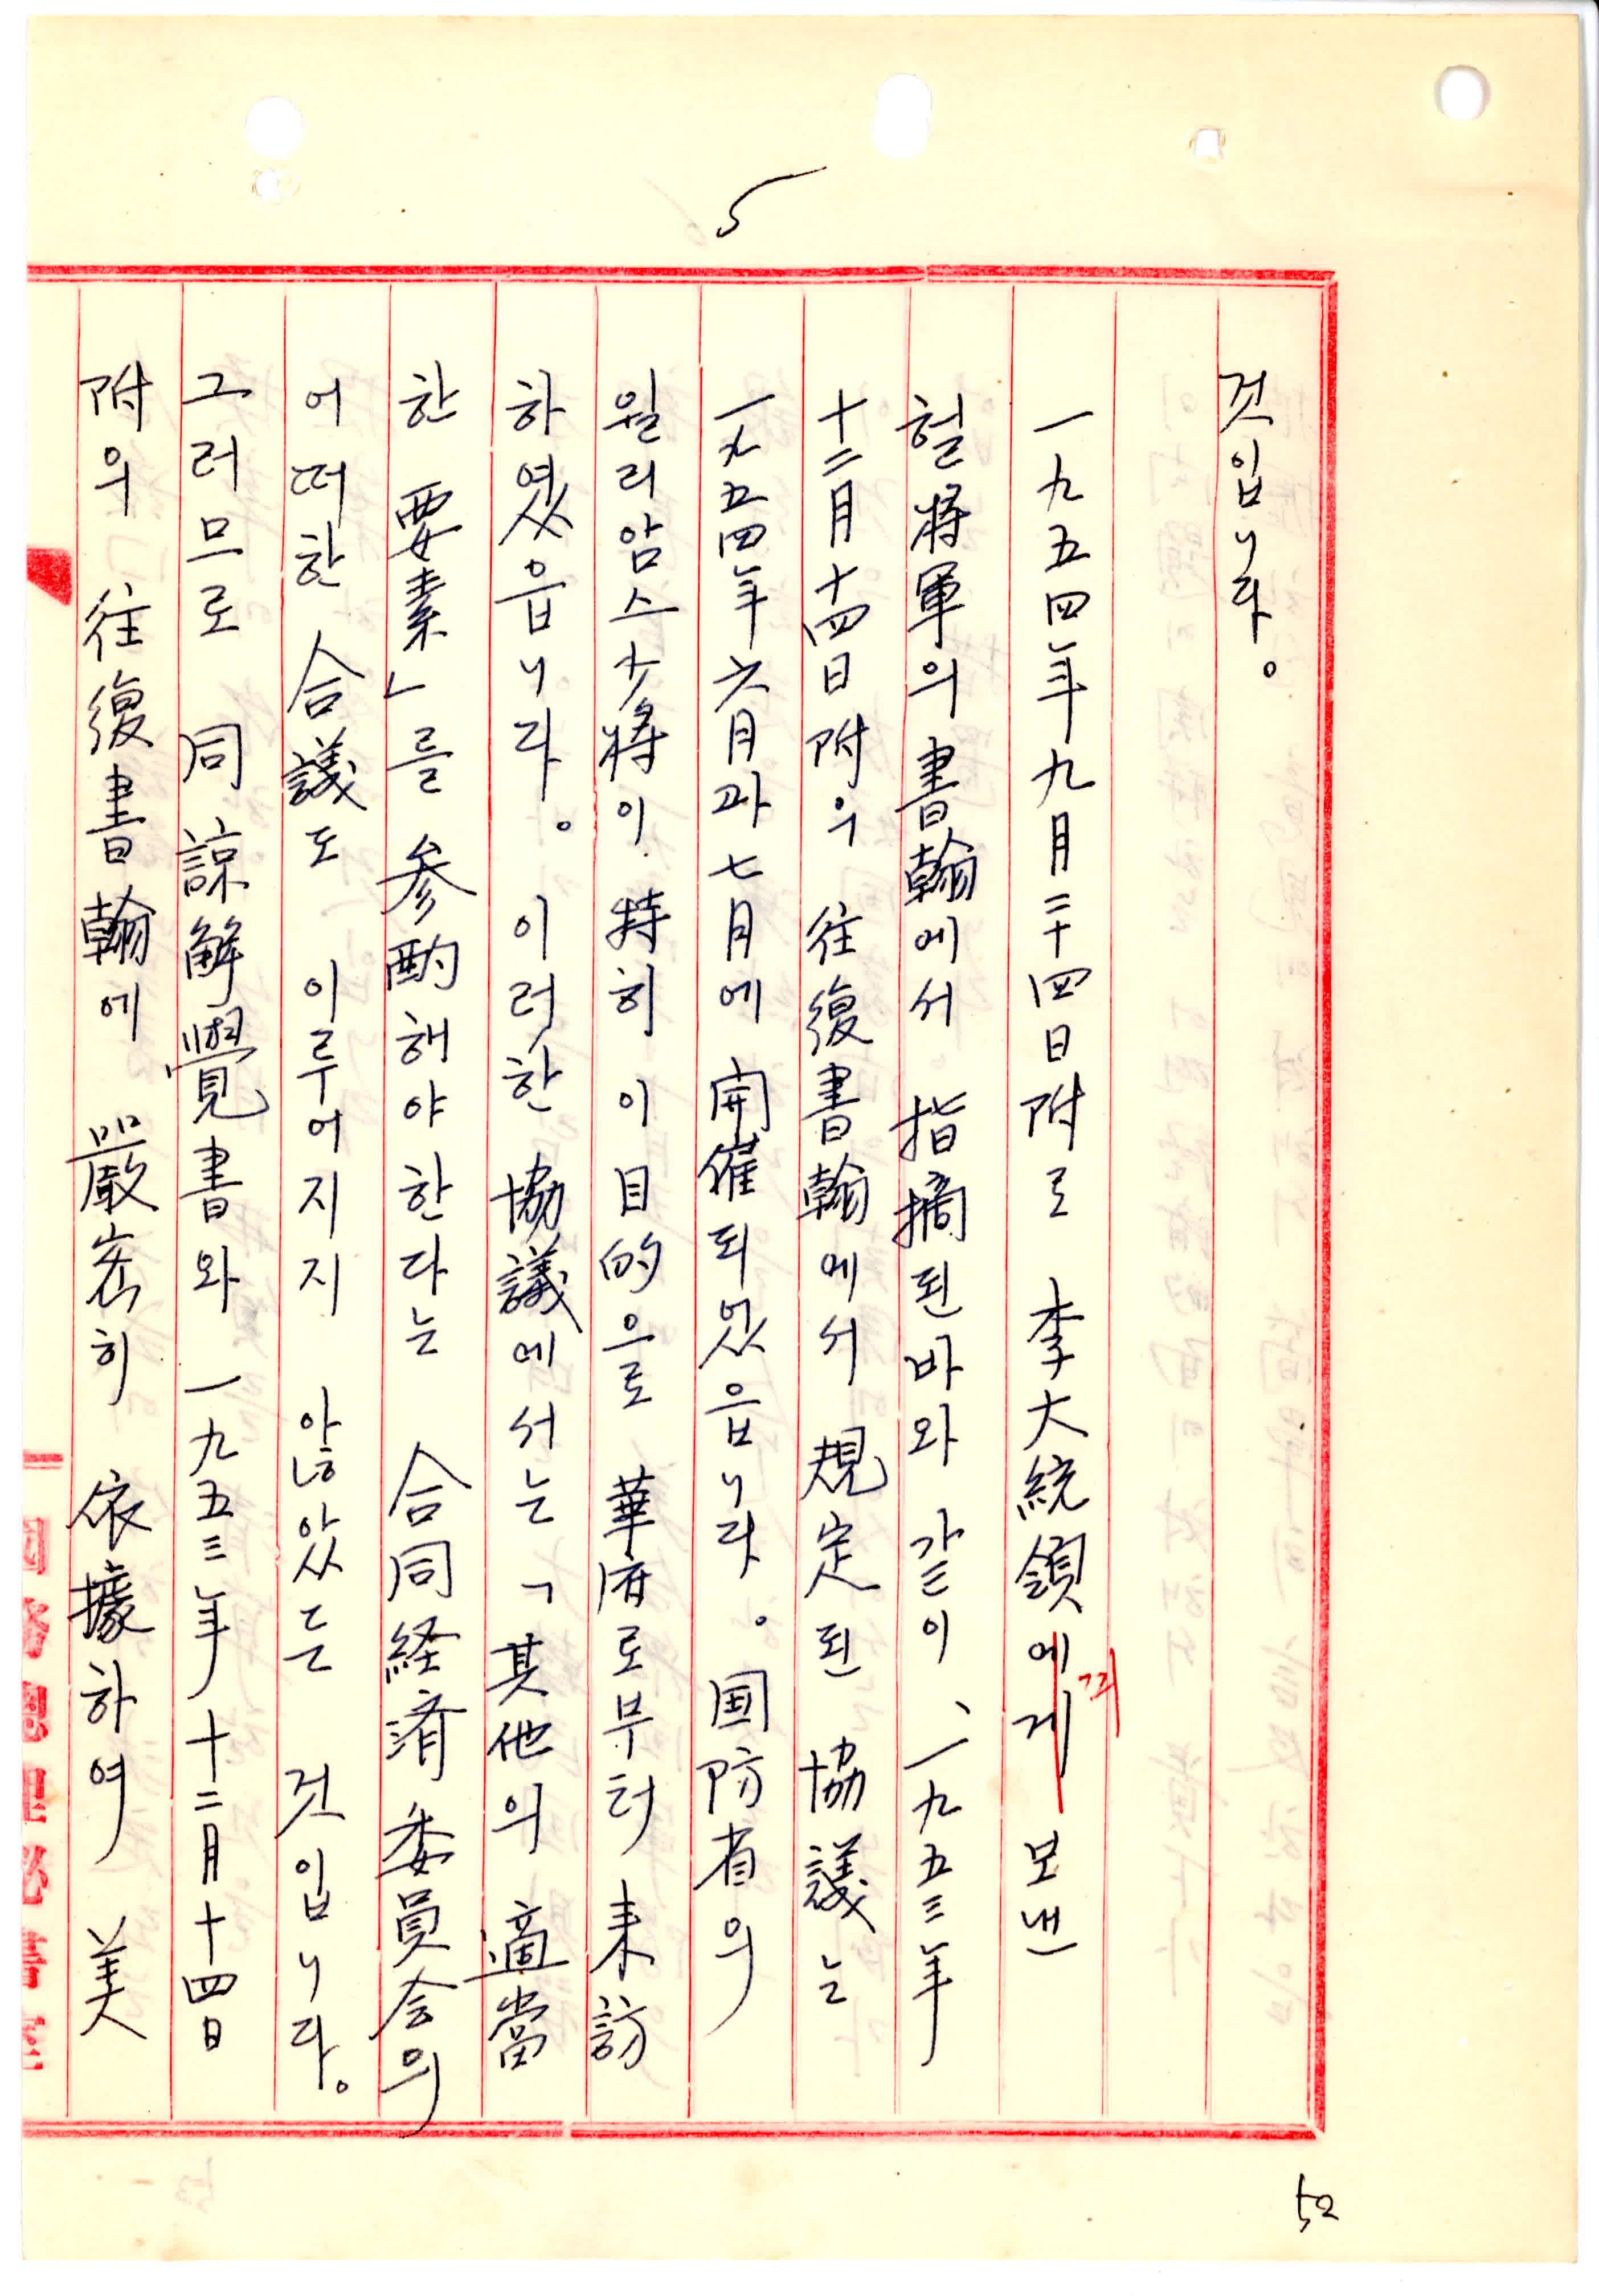 5
것입니다。
一九五四年九月二十四日附로 李大統領에게 보낸
께
헐將軍의 書翰에서 指摘된바와 같이、一九五三年
十二月十四日附의 往復書翰에서 規定된 協議는
一九五四年六月과七月에 開催되었읍니다。国防省의
윌리암스少將이 特히 이目的으로 華府로부터 来訪
하였읍니다。이러한 協議에서는「其他의 適當
한 要素」를 参酌해야한다는 合同経済委員会의
어떠한 合議도 이루어지지 않았든 것입니다。
그러므로 同 諒解覺書와 一九五三年十二月十四日
附의 往復書翰에 嚴密히 依據하여 美
52